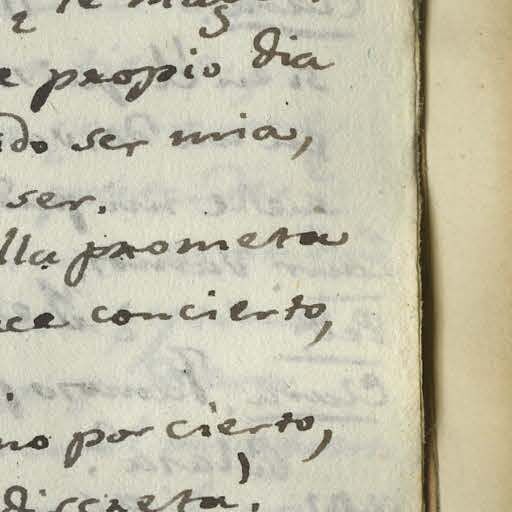 propio dia
ser mia,
ser.
prometa
concierto,
no por cierto,
discreta,